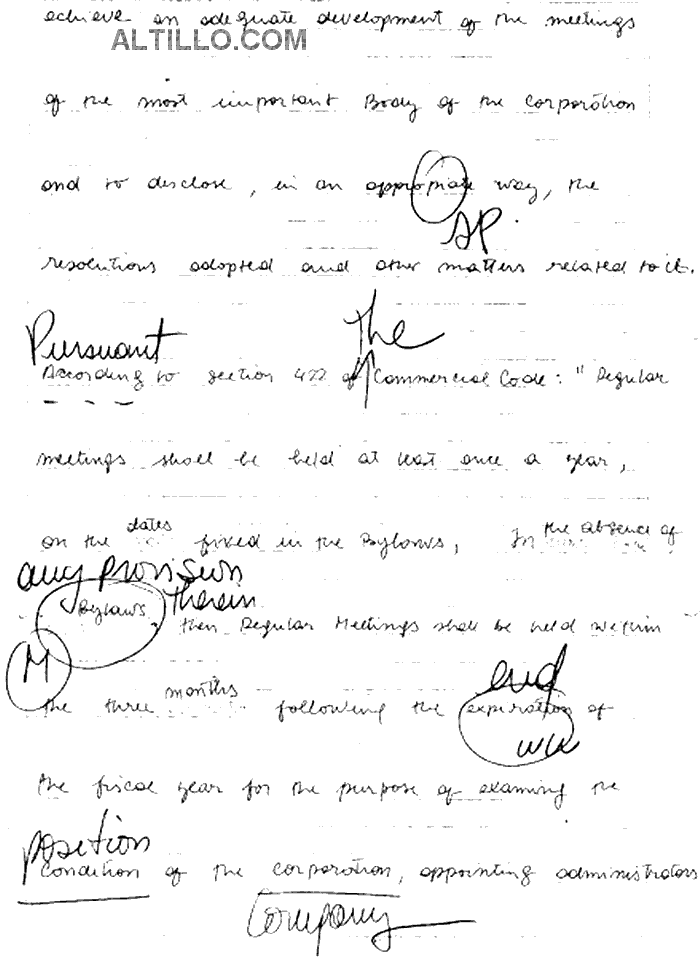 achieve an adequate development of the meetings
ALTILLO.COM
of the most important Body of the corporation
and to disclose, in an appropiate way, the
SP.
resolutions adopted and other matters related to it.
Pursuant the
According to section 422 of Commercial Code: "Regular
meetings shall be held at least once a year,
on the dates fixed in the Bylaws, In the absence of
any provision
Bylaws, therein then Regular Meetings shall be held within
M
the three months following the expiration of
end
WW
the fiscal year for the purpose of examing the
position
condition of the corporation, appointing administrators
Company